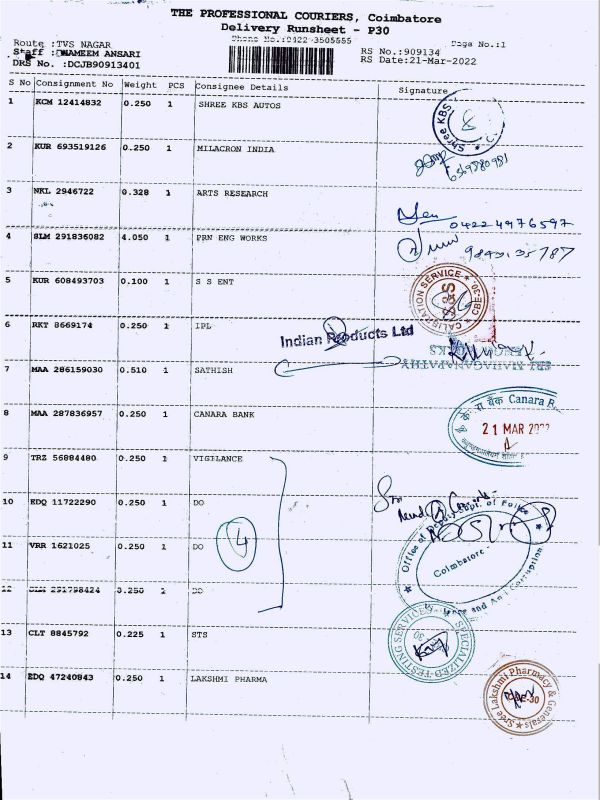 THE PROFESSIONAL COURIERS, Coimbatore
Delivery Runsheet - P30
Phone No.:0422-3505555
Route :TVS NAGAR
RS No.:909134
Page No.:1
Staff : ANSARI
RS Date:21-Mar-2022
DRS No. :DCJB90913401
S No Consignment No Weight PCS Consignee Details Signature
1 KCM 12414832 0.250 1 SHREE KBS AUTOS
Shree KBS
2 KUR 693519126 0.250 1 MILACRON INDIA
3 NKL 2946722 0.328 1 ARTS RESEARCH
04224976597
4 SLM 291836082 4.050 1 PRN ENG WORKS
5 KUR 608493703 0.100 1 S S ENT
CALIBRATION SERVICE
CBE-30
S&S
6 RKT 8669174 0.250 1 IPL
Indian Products Ltd
SRI MAHAGANAPATHY
7 MAA 286159030 0.510 1 SATHISH
8 MAA 287836957 0.250 1 CANARA BANK
Canara B
21 MAR
9 TRZ 56884480 0.250 1 VIGILANCE
10 EDQ 11722290 0.250 1 DO
4
11 VRR 1621025 0.250 1 DO
Office of Dept. of Police
Coimbatore
and Anti Corruption
12 SLM 291798424 0.250 1 DO
13 CLT 8845792 0.225 1 STS
SPECIALIZED TESTING SERVICES
30
14 EDQ 47240843 0.250 1 LAKSHMI PHARMA
Sree Lakshmi Pharmacy & Generals